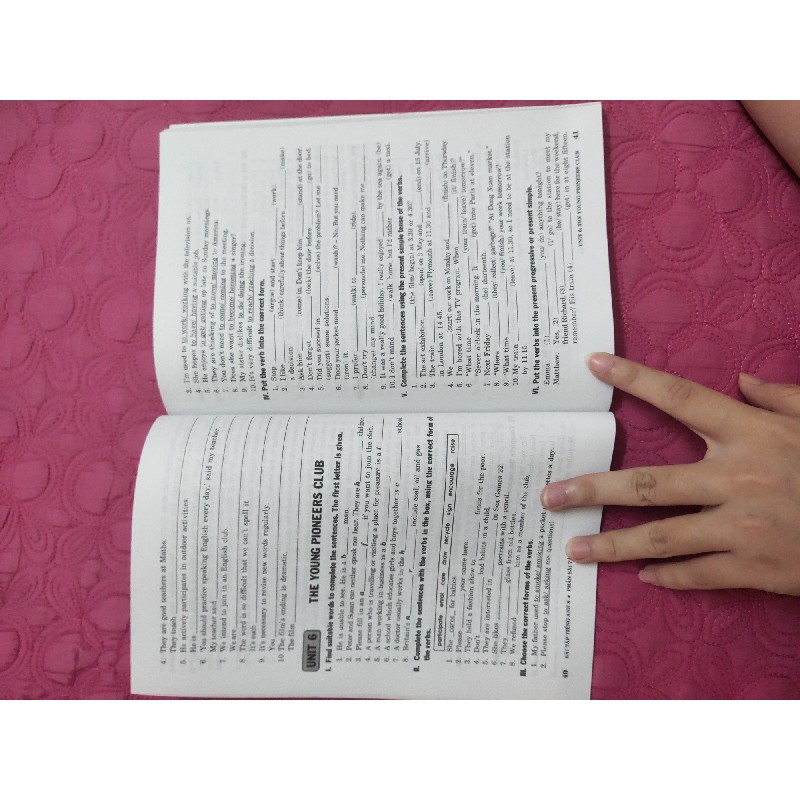 4. They are good teachers at Maths.
They teach
5. He actively participates in outdoor activities.
He is
6. "You should practice speaking English every day," said my teacher.
My teacher said
7. We intend to join in an English club.
We are
8. The word is so difficult that we can't spell it.
It's such
9. It's necessary to revise new words regularly.
You
10. The film's ending is dramatic.
The film
UNIT 6
THE YOUNG PIONEERS CLUB
I. Find suitable words to complete the sentences. The first letter is given.
1. He is unable to see. He is a b man.
2. Peter and Susan can neither speak nor hear. They are h
3. Please fill in an a f if you want to join the club.
4. A person who is travelling or visiting a place for pleasure is a t
5. A man working in business is a b
6. A school which educates girls and boys together is c school
7. A doctor usually works in the h
8. Britain's n r include coal, oil and gas
II. Complete the sentences with the verbs in the box, using the correct form of the verbs.
participate enroll care draw recycle sign encourage raise
1. She was for babies.
2. Please your name here.
3. They held a fashion show to funds for the poor.
4. Don't bad habits in a child.
5. They are interested in in Sea Games 22.
6. She likes portraits with a pencil.
7. They glass from old bottles.
8. We refused him as a member of the club.
III. Choose the correct forms of the verbs.
1. My father used to smoke/ smoking a packet of cigarettes a day.
2. Please stop to ask/ asking me questions!
40
3. I'm used to to work/ working with the television on.
4. She hopes to have/ having a suitable job.
5. He enjoys to get/ getting up late on Sunday mornings.
6. They are thinking of to move/ moving to America.
7. You don't need to come/ coming to the meeting.
8. Does she want to become/ becoming a singer?
9. My sister dislikes to do/ doing the ironing.
10. It's very difficult to reach/ reaching a decision.
IV. Put the verb into the correct form.
1. Stop (argue) and start (work).
2. I like (think) carefully about things before (make) a decision.
3. Ask him (come) in. Don't keep him (stand) at the door.
4. Don't forget (lock) the door before (go) to bed.
5. Did you succeed in (solve) the problem? Let me (suggest) some solutions.
6. Does your jacket need (wash)? - No. But you need (iron) it.
7. I prefer (walk) to (ride).
8. Don't try (persuade) me. Nothing can make me (change) my mind.
9. It was a really good holiday. I really enjoyed by the sea again. (be)
10. I don't mind (walk) home but I'd rather (get) a taxi.
V. Complete the sentences using the present simple tense of the verbs.
1. (the film/ begin) at 3.30 or 4.30?
2. The art exhibition (open) on 3 May and (end) on 15 July.
3. The train (leave) Plymouth at 11.30 and (arrive) in London at 14.45.
4. We (start) our work on Monday and (finish) on Thursday.
5. I'm bored with this TV program. When (it/ finish)?
6. "What time (your train/ leave) tomorrow?" "Seven o'clock in the morning. It (get) into Paris at eleven."
7. Next Friday (be) thirteenth.
8. "Where (they/ collect) garbage?" "At Dong Xuan market."
9. "What time (you/ finish) your work tomorrow?"
10. My train (leave) at 11.30, so I need to be at the station by 11.15
VI. Put the verbs into the present progressive or present simple.
Emma: (1) (you/ do) anything tonight?
Matthew: Yes, (2) (I/ go) to the station to meet my friend Richard. (3) (he/ stay) here for the weekend, remember? His train (4) (get) in at eight fifteen.
UNIT 6. THE YOUNG PIONEERS CLUB 41